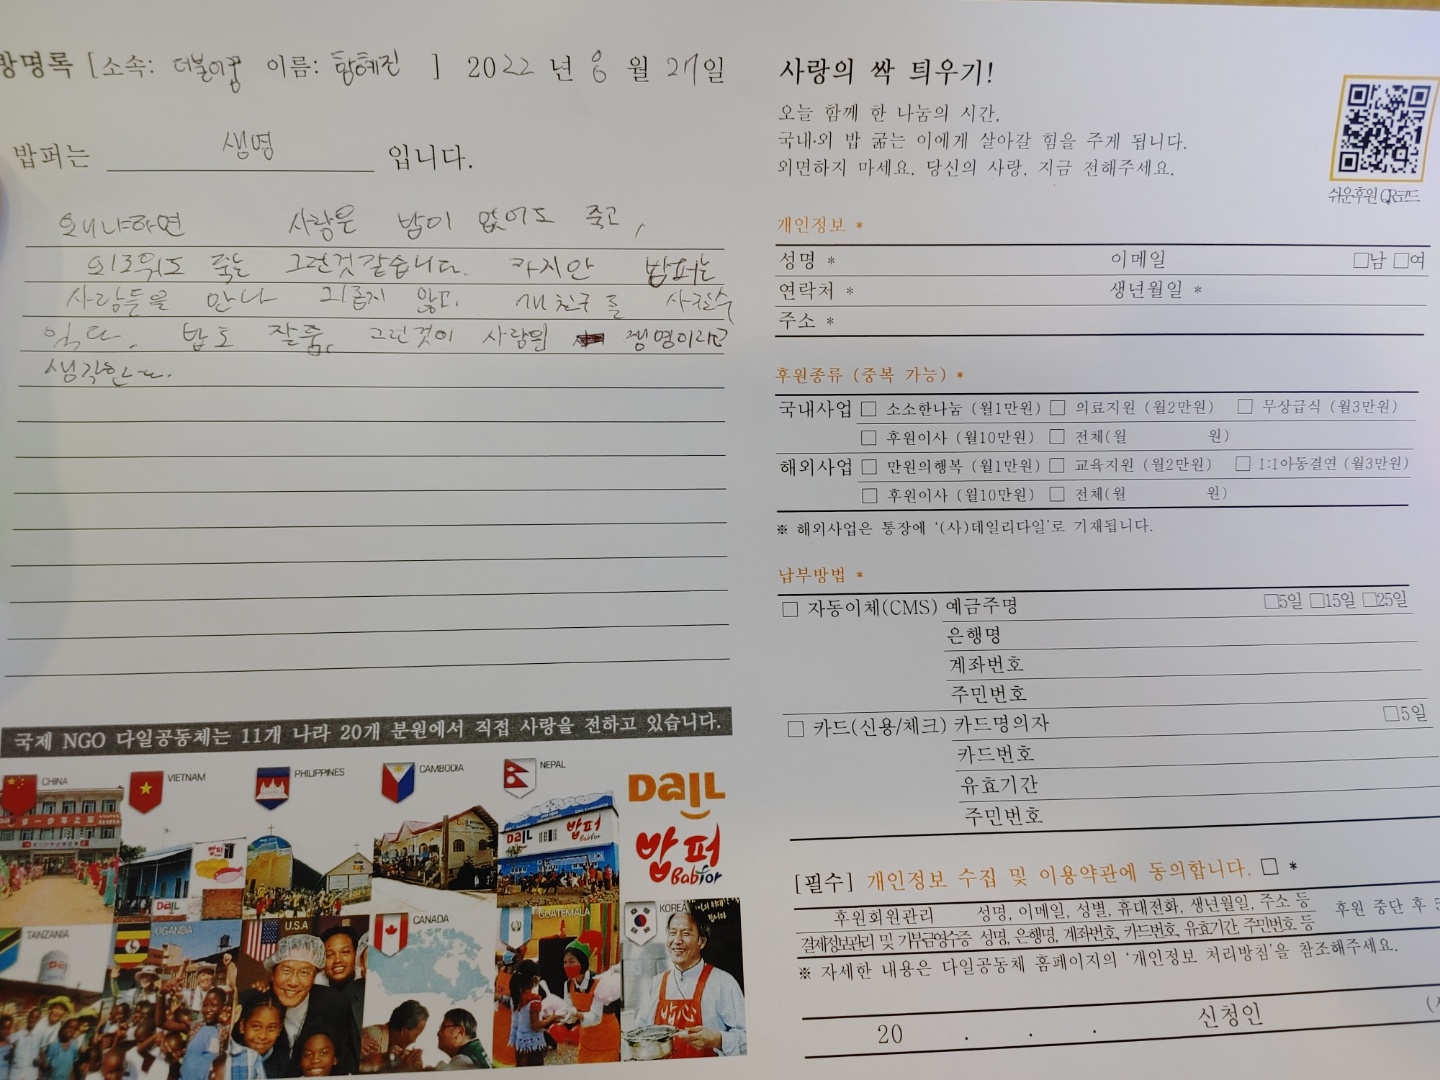 방명록 [소속: 더불어꿈 이름: 황혜진 ] 2022 년 8 월 27일
밥퍼는 생명 입니다.
왜냐하면 사람은 밥이 없어도 죽고,
외로워도 죽는 그런것같습니다. 하지만 밥퍼는
사람들을 만나 외롭지 않고. 새친구를 사귈수
있다. 밥도 잘줌. 그런것이 사람의 생명이라고
생각한다.
국제 NGO 다일공동체는 11개 나라 20개 분원에서 직접 사랑을 전하고 있습니다.
CHINA
VIETNAM
PHILIPPINES
CAMBODIA
NEPAL
DaiL
밥퍼
Babfor
DaiL
밥퍼
Babfor
DaiL
TANZANIA
UGANDA
U.S.A
CANADA
GUATEMALA
KOREA
사랑의 싹 틔우기!
오늘 함께 한 나눔의 시간,
국내·외 밥 굶는 이에게 살아갈 힘을 주게 됩니다.
외면하지 마세요. 당신의 사랑, 지금 전해주세요.
쉬운후원 QR코드
개인정보 *
성명 * 이메일 □남 □여
연락처 * 생년월일 *
주소 *
후원종류 (중복 가능) *
국내사업 □ 소소한나눔 (월1만원) □ 의료지원 (월2만원) □ 무상급식 (월3만원)
□ 후원이사 (월10만원) □ 전체(월 원)
해외사업 □ 만원의행복 (월1만원) □ 교육지원 (월2만원) □ 1:1아동결연 (월3만원)
□ 후원이사 (월10만원) □ 전체(월 원)
※ 해외사업은 통장에 '(사)데일리다일'로 기재됩니다.
납부방법 *
□ 자동이체(CMS) 예금주명 □5일 □15일 □25일
은행명
계좌번호
주민번호
□ 카드(신용/체크) 카드명의자 □5일
카드번호
유효기간
주민번호
[필수] 개인정보 수집 및 이용약관에 동의합니다. □ *
후원회원관리 성명, 이메일, 성별, 휴대전화, 생년월일, 주소 등 후원 중단 후 5
결제정보관리 및 기부금영수증 성명, 은행명, 계좌번호, 카드번호, 유효기간, 주민번호 등
※ 자세한 내용은 다일공동체 홈페이지의 '개인정보 처리방침'을 참조해주세요.
20 . . 신청인